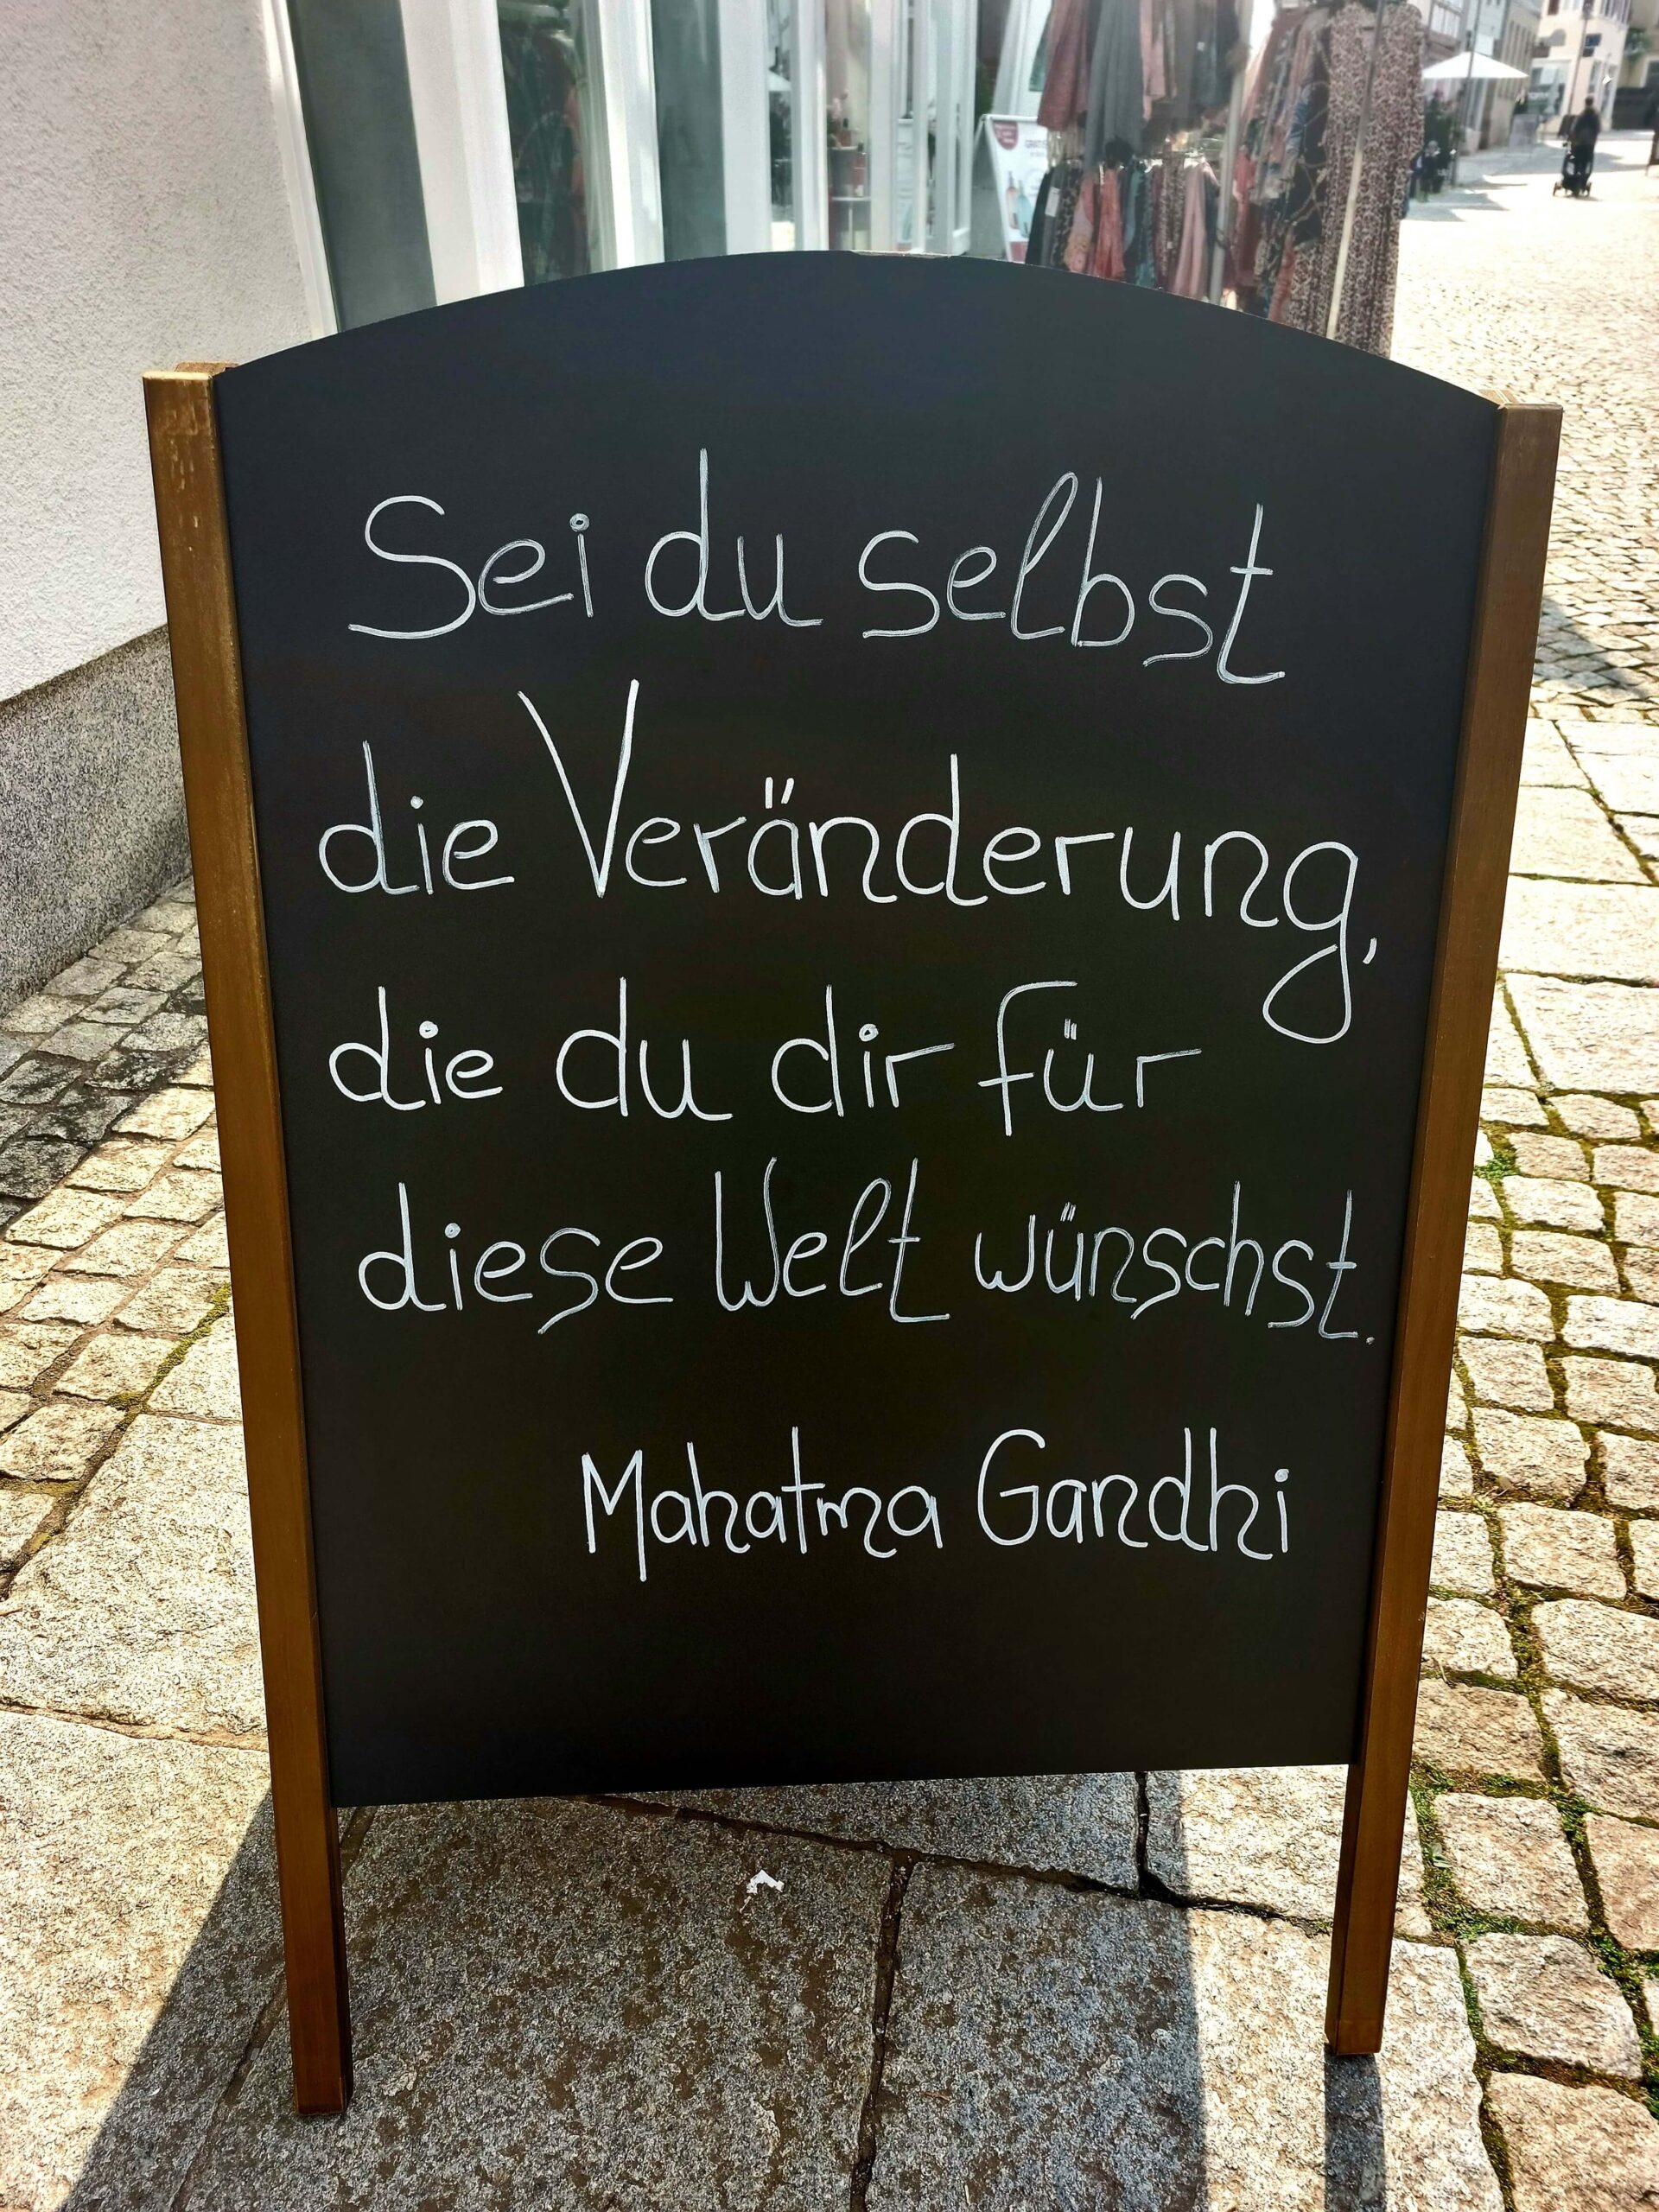 Sei du selbst
die Veränderung,
die du dir für
diese Welt wünschst.
Mahatma Gandhi